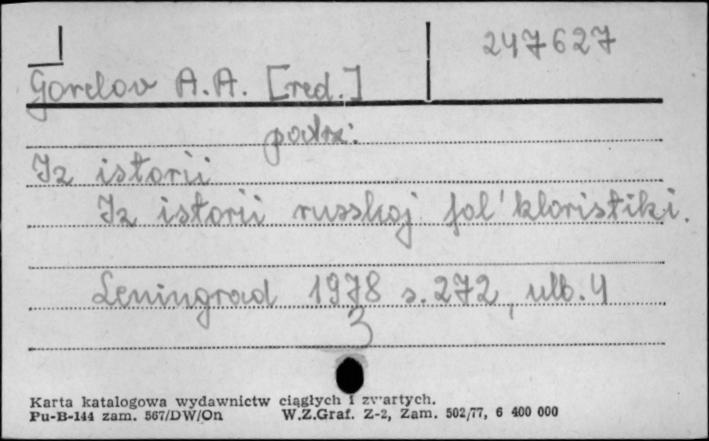 247627
Gorelov A.A. [red.]
patrz:
Iz istorii
Iz istorii russkoj fol'kloristiki.
Leningrad 1978 s. 272, ulb. 4
3
Karta katalogowa wydawnictw ciągłych i zwartych.
Pu-B-144 zam. 567/DW/On W.Z.Graf. Z-2, Zam. 502/77, 6 400 000